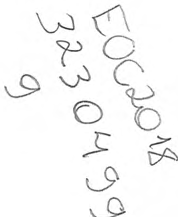 EOC2018
3230499
9